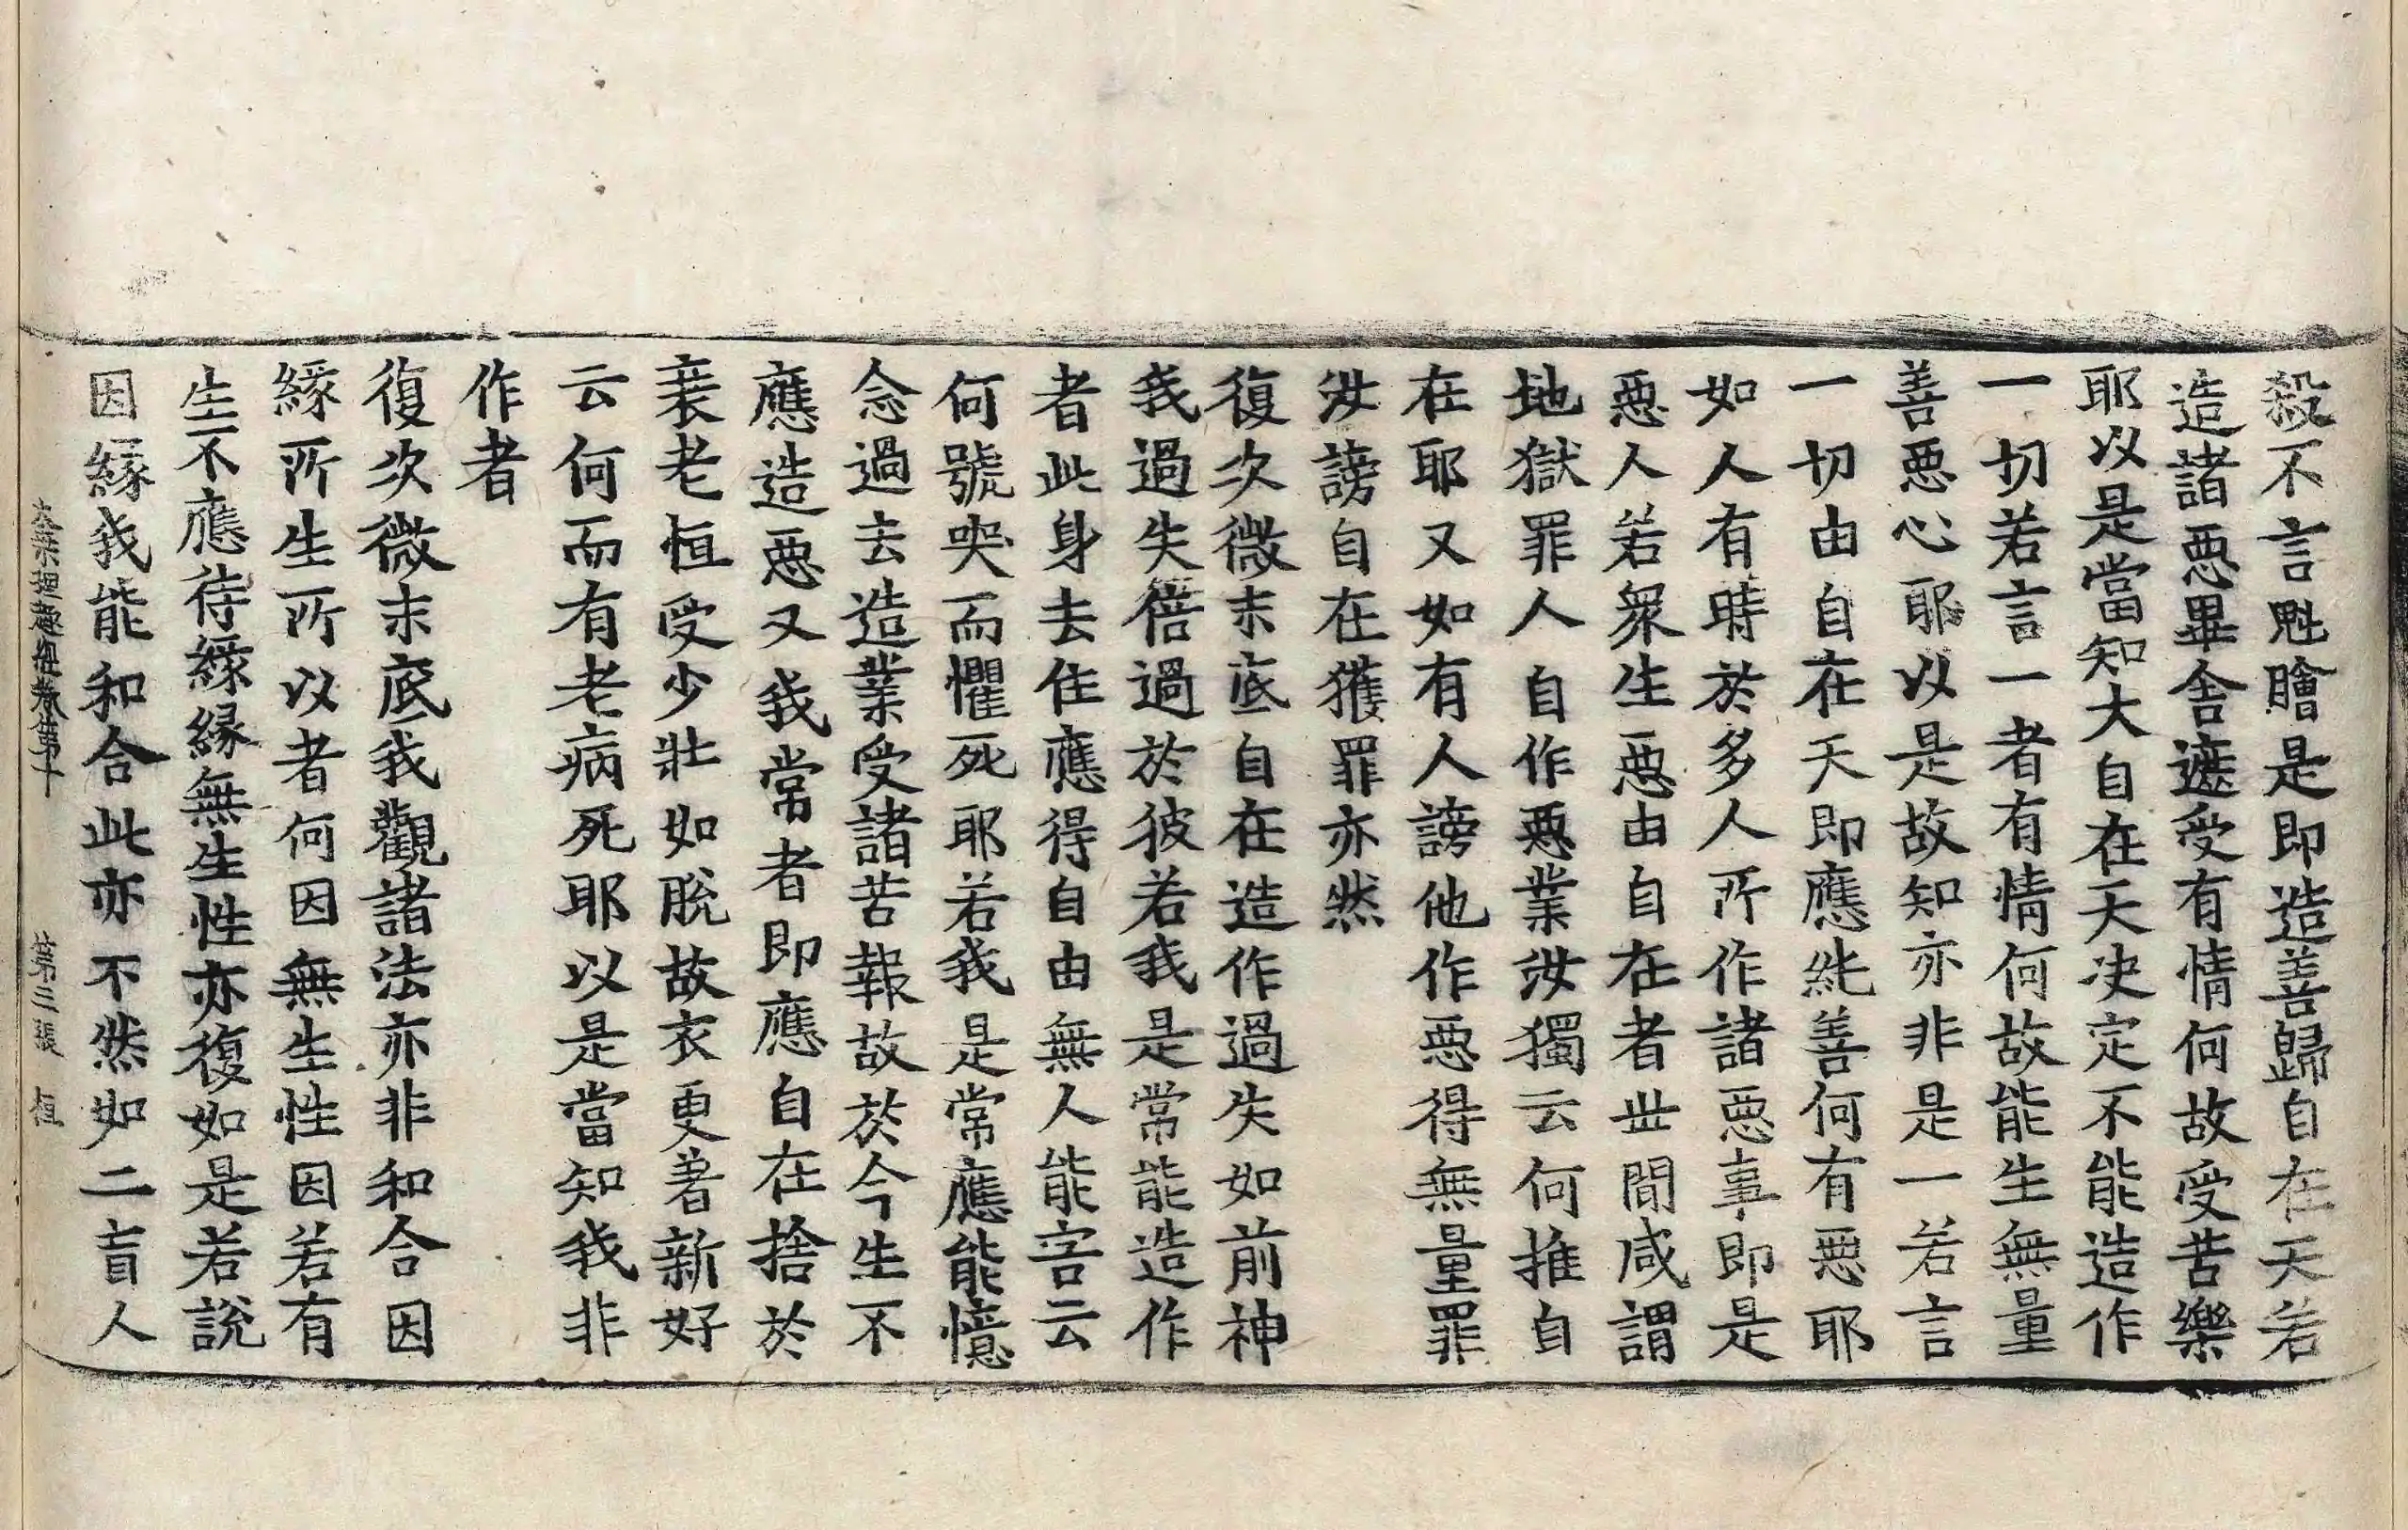 殺不言魁膾是即造善歸自在天若
造諸惡畢舍遮受有情何故受苦樂
耶以是當知大自在天决定不能造作
一切若言一者有情何故能生無量
善惡心耶以是故知亦非是一若言
一切由自在天即應純善何有惡耶
如人有時於多人所作諸惡事即是
惡人若衆生惡由自在者世間咸謂
地獄罪人自作惡業汝獨云何推自
在耶又如有人謗他作惡得無量罪
汝謗自在獲罪亦然
復次微末底自在造作過失如前神
我過失倍過於彼若我是常能造作
者此身去住應得自由無人能害云
何號哭而懼死耶若我是常應能憶
念過去造業受諸苦報故於今生不
應造惡又我常者即應自在捨於
衰老恒受少壯如脫故衣更著新好
云何而有老病死耶以是當知我非
作者
復次微末底我觀諸法亦非和合因
緣所生所以者何因無生性因若有
生不應待緣緣無生性亦復如是若說
因緣我能和合此亦不然如二盲人
大乘理趣經卷第十 第三張 恒